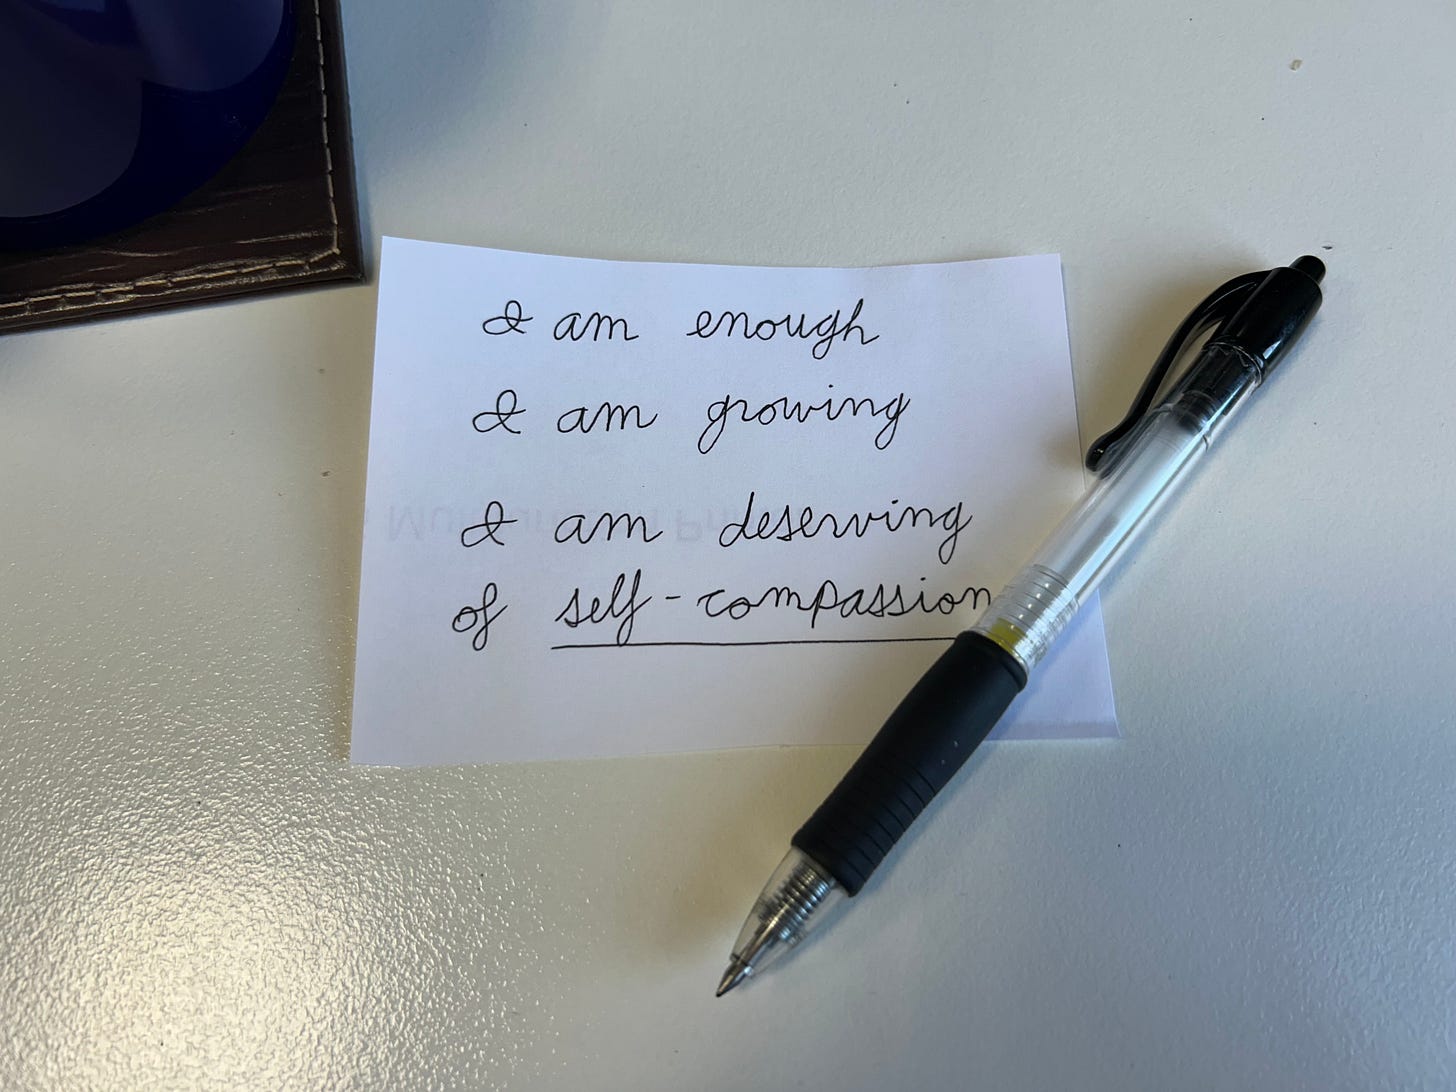 I am enough
I am growing
I am deserving
of self-compassion